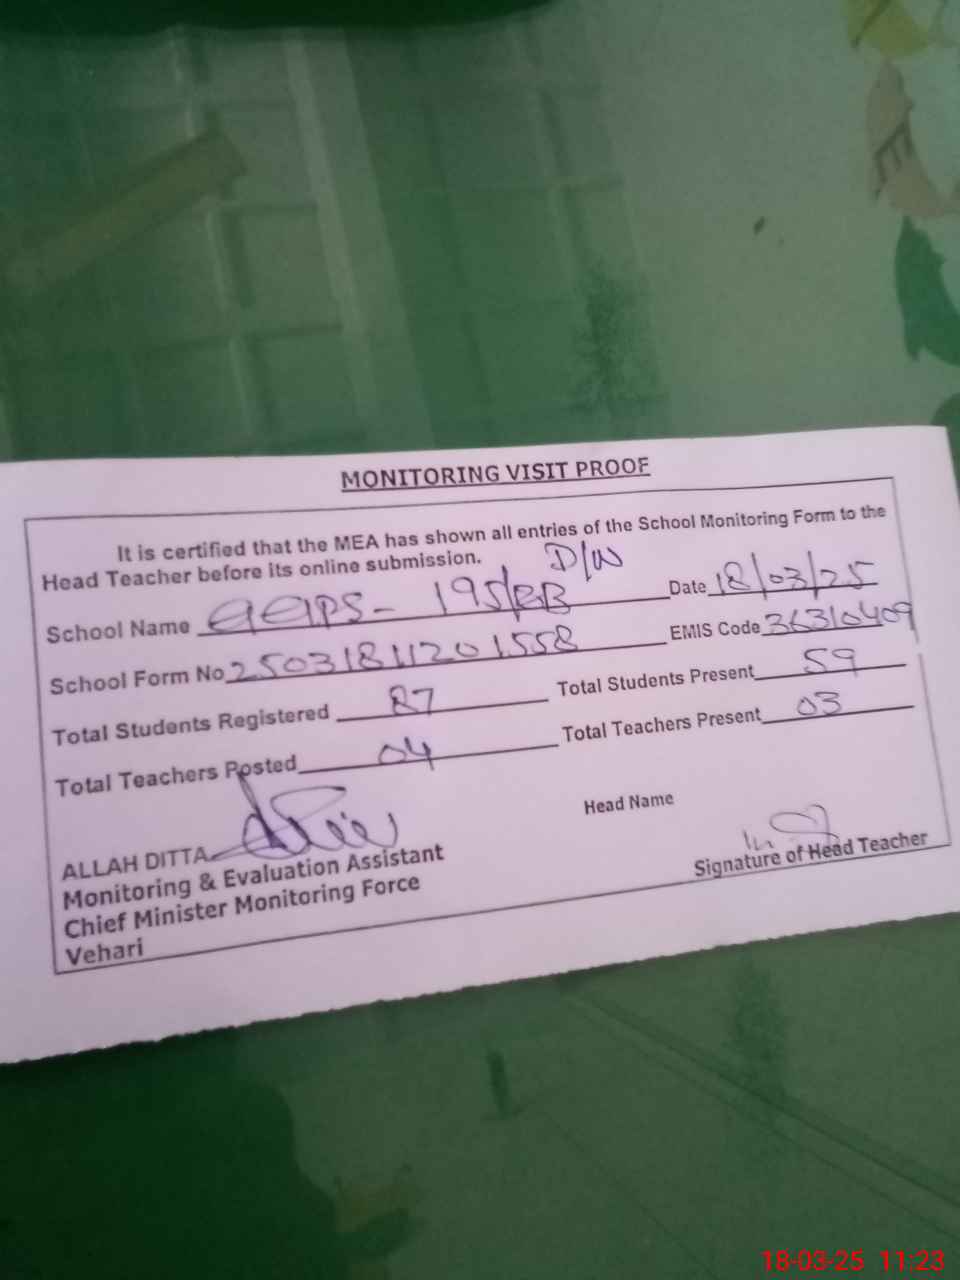 MONITORING VISIT PROOF
It is certified that the MEA has shown all entries of the School Monitoring Form to the
Head Teacher before its online submission.
D/W
School Name GGPS- 195/EB Date 18/03/25
School Form No 25031811201558 EMIS Code 36310409
Total Students Registered 87 Total Students Present 59
Total Teachers Posted 04 Total Teachers Present 03
Head Name
ALLAH DITTA
Monitoring & Evaluation Assistant
Chief Minister Monitoring Force
Vehari
Signature of Head Teacher
18-03-25 11:23